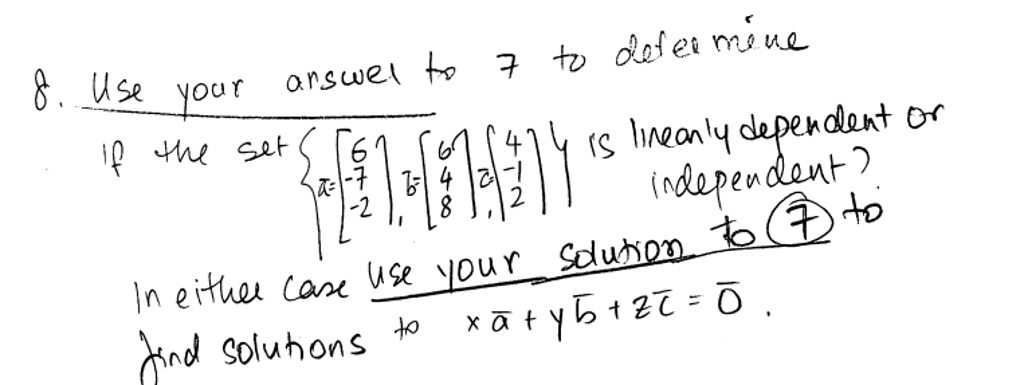 8. Use your answer to 7 to determine
if the set { a̅ = [6 -7 -2], b̅ = [6 4 8], c̅ = [4 -1 2] } is linearly dependent or
independent?
In either case use your solution to 7 to
find solutions to x a̅ + y b̅ + z c̅ = 0̅ .